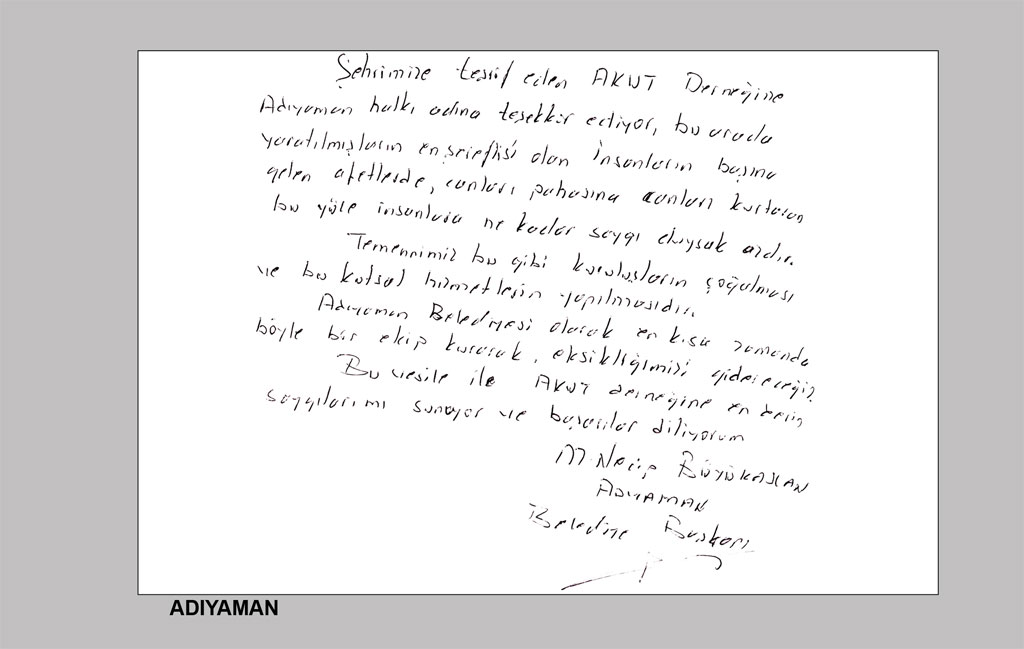 Şehrimize teşrif eden AKUT Derneğine
Adıyaman halkı adına teşekkür ediyor, bu arada
yaratılmışların en şereflisi olan insanların başına
gelen afetlerde, canları pahasına canları kurtaran
bu yüce insanlara ne kadar saygı duysak azdır.
Temennimiz bu gibi kuruluşların çoğalması
ve bu kutsal hizmetlerin yapılmasıdır.
Adıyaman Belediyesi olarak en kısa zamanda
böyle bir ekip kurarak, eksikliğimizi gidereceğiz.
Bu vesile ile AKUT derneğine en derin
saygılarımı sunuyor ve başarılar diliyorum
M. Necip BÜYÜKASLAN
ADIYAMAN
Belediye Başkanı
ADIYAMAN